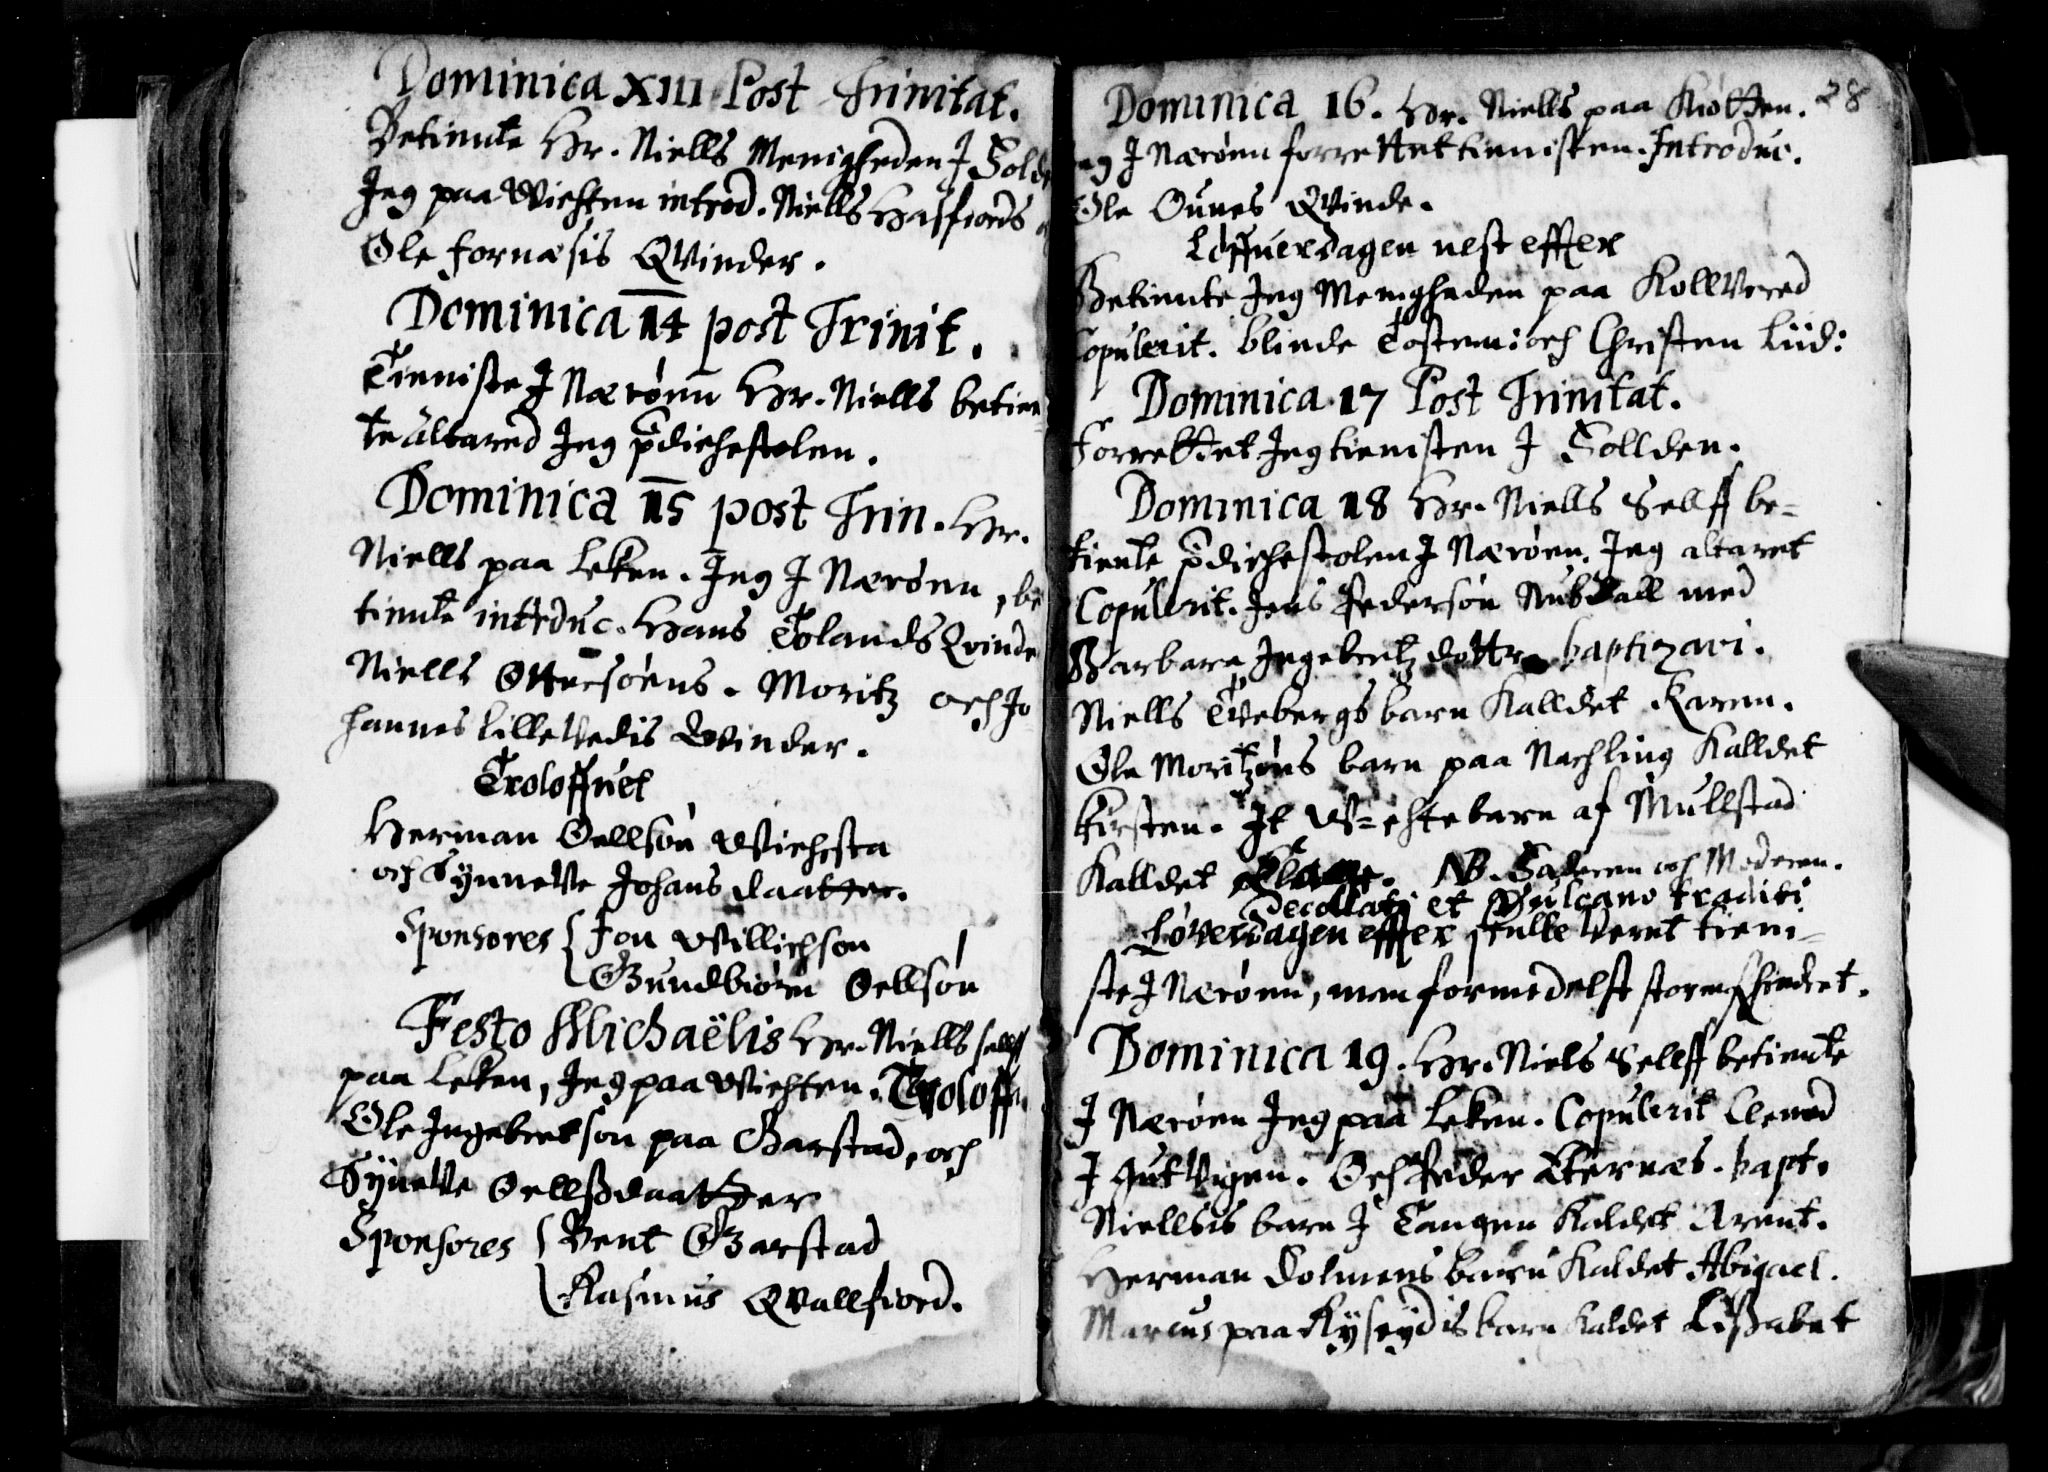 Dominica XIII Post Trinitat.
Betiente Hr. Niells Menigheden J Solde
Jeg paa Wichten introd. Niells Hasfiords
Ole Fornæsis Qvinder.
Dominica 14 post Trinit.
Tieniste J Nærøen Hr. Niells betien-
te altared Jeg p̄dichestolen.
Dominica 15 post Trin. Hr.
Niells paa Leken. Jeg J Nærøen, be
tiente introduc. Hans Tolands Qvinde
Niells Ottersøens. Moritz och Jo
hannes Lillevedis Qvinder.
Troloffuet
Herman Oellsøn Wichesta
och Synneve Johans daatter.
Sponsores Jon Willichson
Gundbiørn Oellsøn
Festo Michaëlis Hr. Niells sellff
paa Leken, Jeg paa Wichten. Troloff
Ole Ingebretsøn paa Garstad, och
Syneve Oellsdaatter
Sponsores Bent Garstad
Rasmus Qvallfiord.
Dominica 16. Hr. Niells paa Kiøtten. 28
Jeg J Nærøen forrettet tienisten. Introduc.
Ole Ounes Qvinde.
Løffuerdagen nest effter
Betiente Jeg Menigheden paa Kollvered
Copulerit. blinde Tosten: och Christen Liid:
Dominica 17 Post Trinitat.
Forrettet Jeg tienisten J Sollden.
Dominica 18 Hr. Niells Sellff be-
tiente p̄dichestolen J Nærøen. Jeg altaret
Copulerit. Jens Pedersøn Nubdall med
Barbara Ingebretz dotter baptizavi.
Niells Tvebergs barn Kalldet Karen.
Ole Moritzøns barn paa Nachling Kalldet
Kirsten. It W-echte barn af Mullstad
Kalldet NB. Faderen och Moderen.
Decollati et Vulcano traditi
Løverdagen effter skulle veret tieni-
ste J Nærøen, men formedelst storm hindret.
Dominica 19. Hr. Niels Sellff betiente
J Nærøen Jeg paa Leken. Copulerit Clemed
J Gutvigen. Och Peder Aternæs. bapt.
Niellsis barn J Tangen Kaldet Arent.
Herman Dolmens barn Kaldet Abigael.
Marcus paa Ryseydis barn Kaldet Lisabet